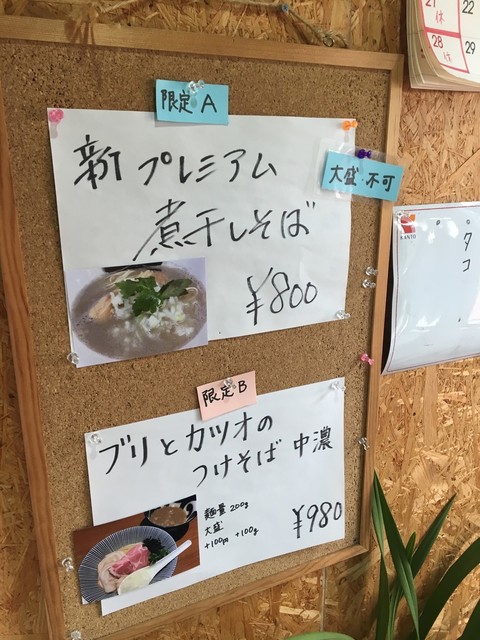 限定 A
新プレミアム
煮干しそば
¥800
大盛・不可
限定 B
ブリとカツオの
つけそば 中濃
麺量 200g
大盛
+100円 +100g
¥980
21
休
22
28
休
29
KANTO
タコ